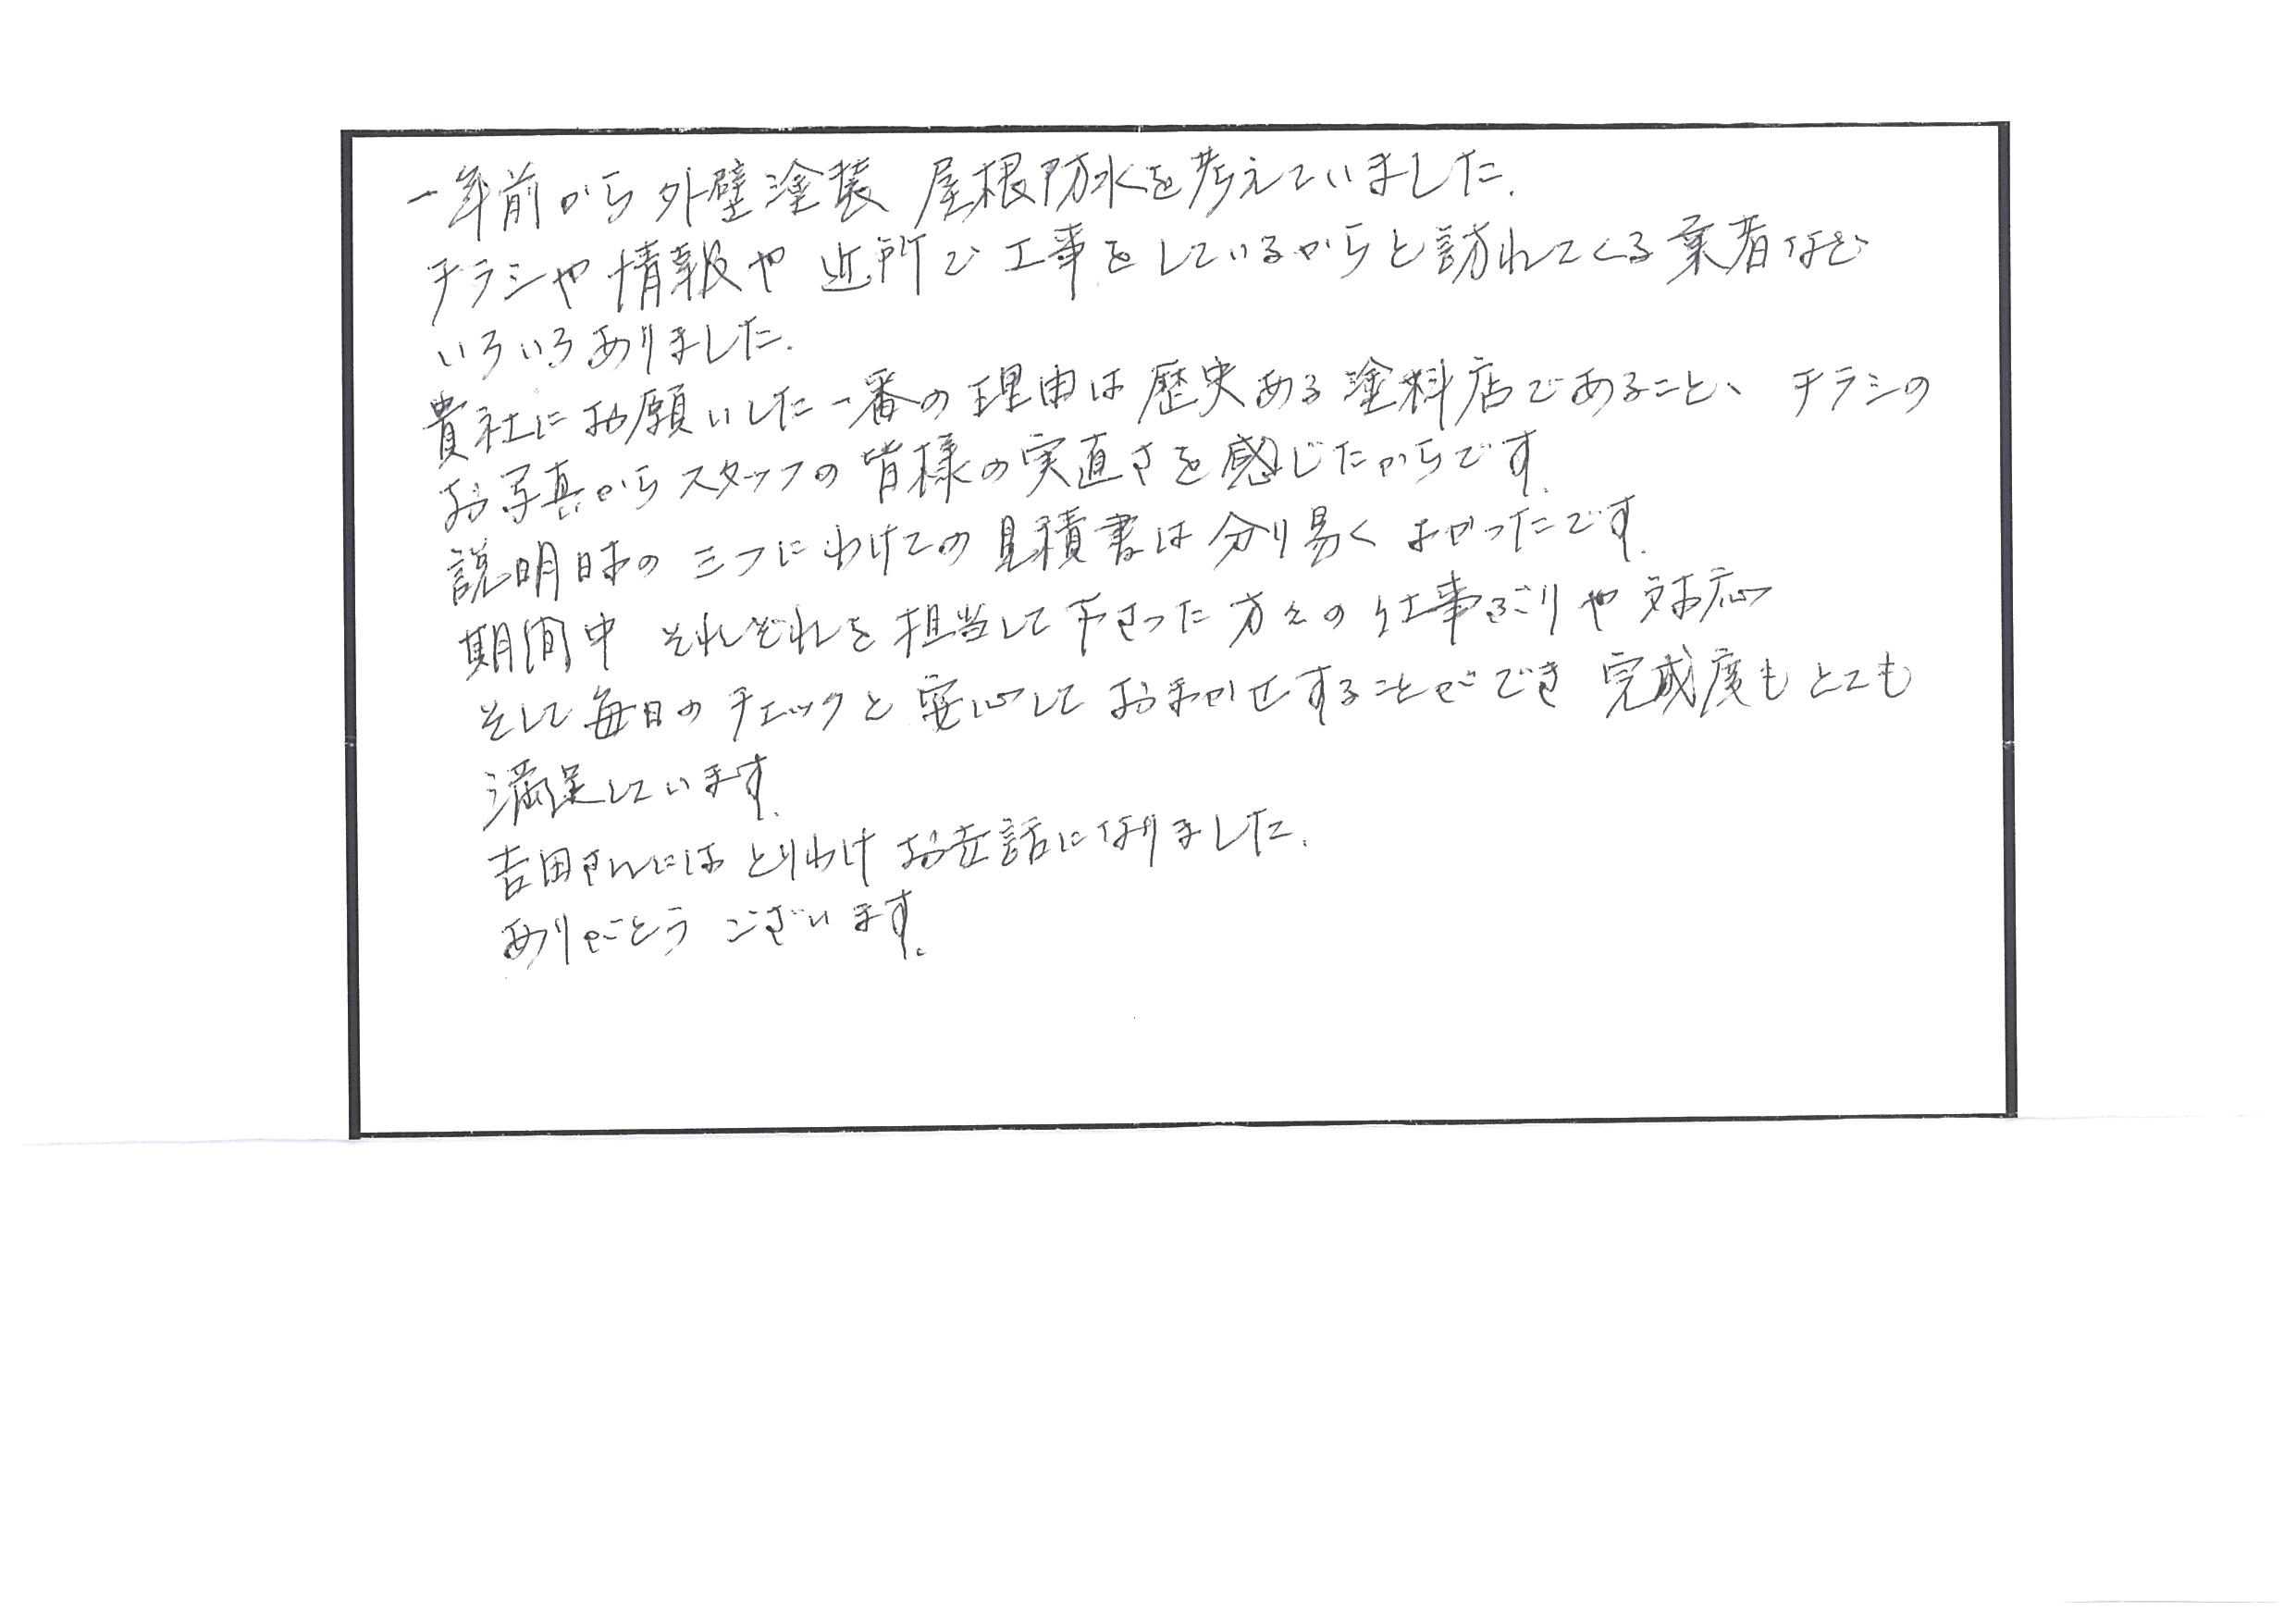 一年前から外壁塗装 屋根防水を考えていました.
チラシや情報や近所で工事をしているからと訪れてくる業者など
いろいろありました.
貴社にお願いした一番の理由は歴史ある塗料店であること、チラシの
お写真からスタッフの皆様の実直さを感じたからです.
説明時の三つにわけての見積書は分り易くよかったです.
期間中 それぞれを担当して下さった方々の仕事ぶりや対応
そして毎日のチェックと安心しておまかせすることができ 完成度もとても
満足しています.
吉田さんにはとりわけお世話になりました.
ありがとうございます.